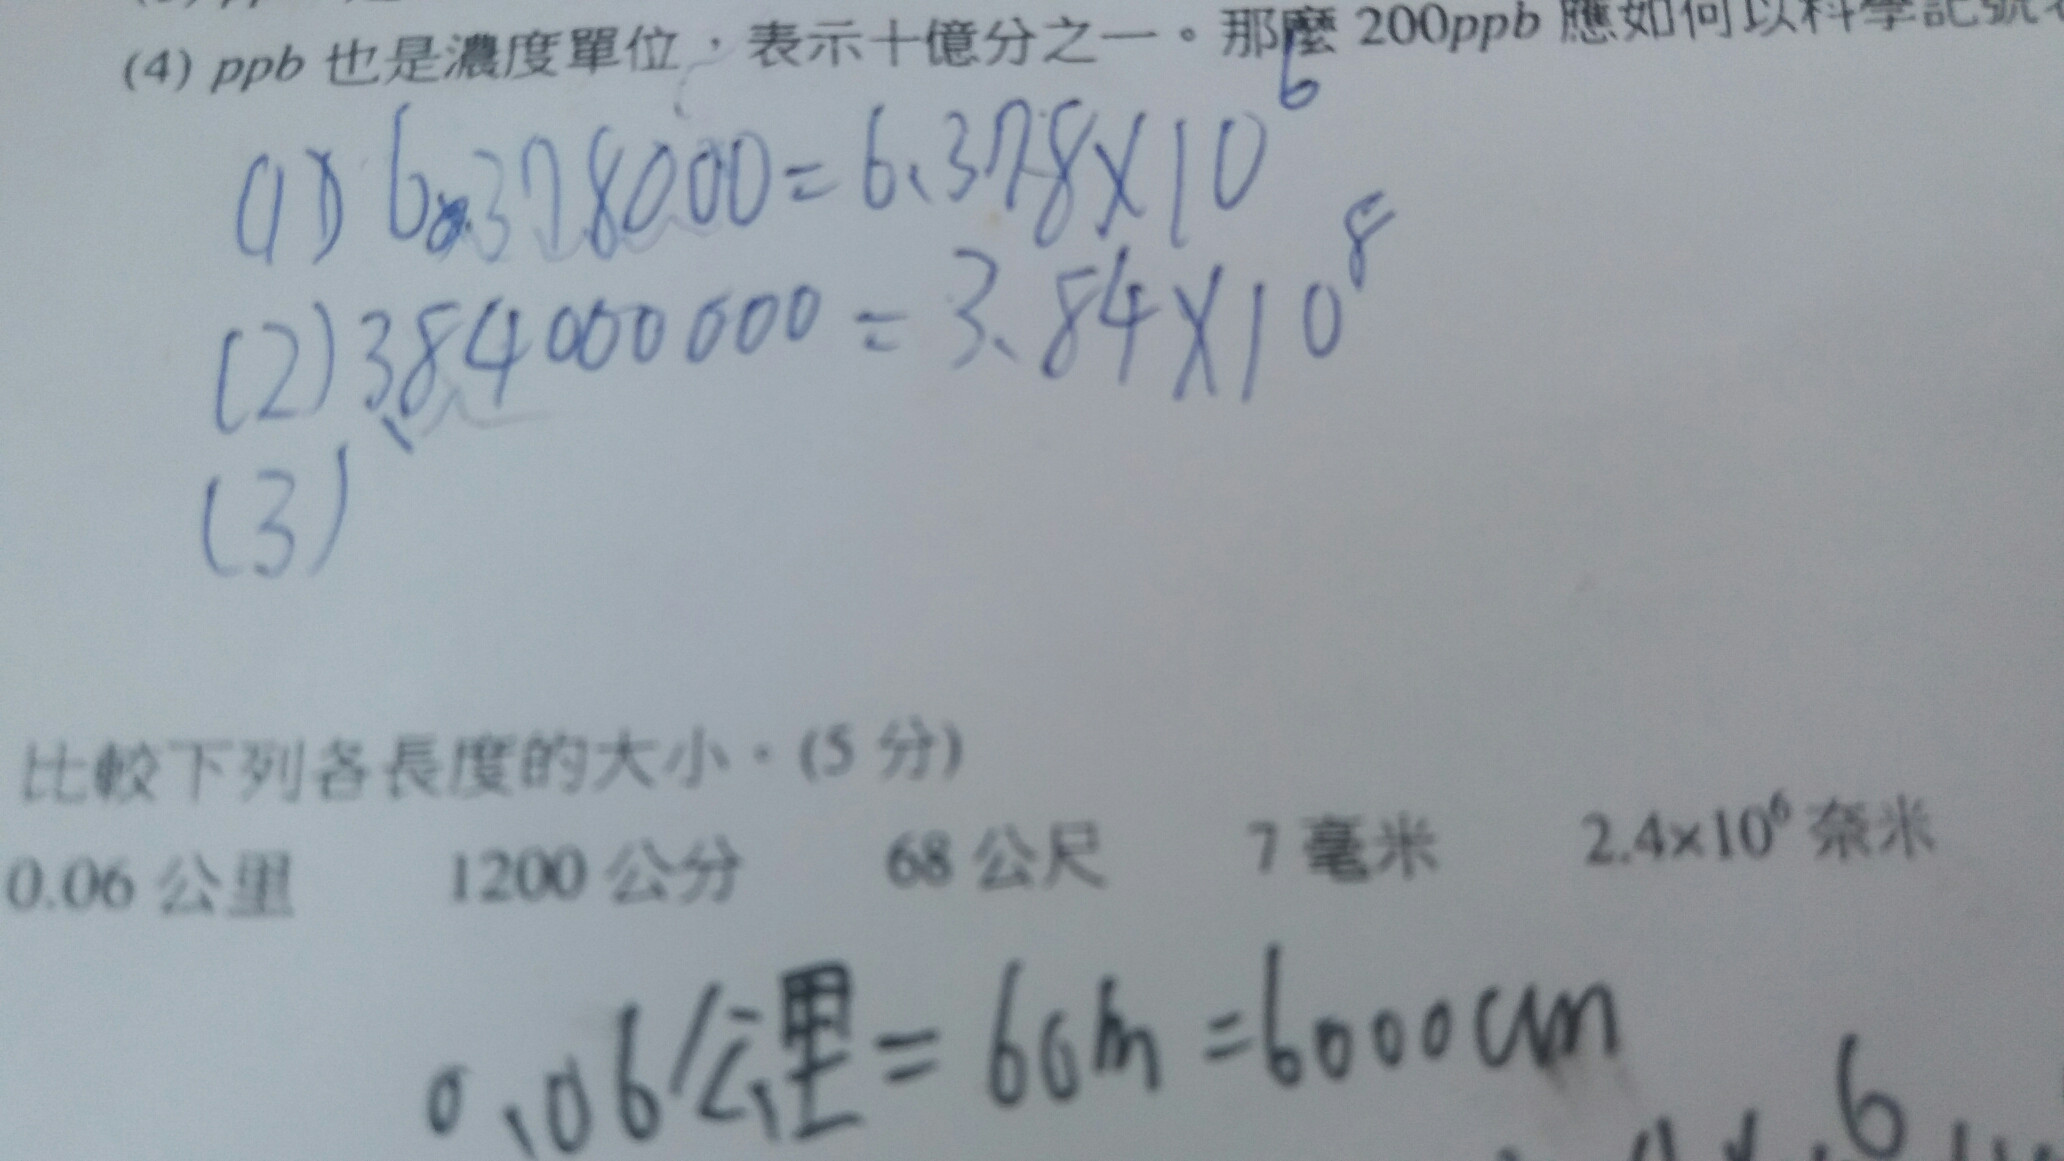 (4) ppb 也是濃度單位,表示十億分之一。那麼 200ppb 應如何以科學記號
(1) 6.378000=6.378×10⁶
(2) 384000000=3.84×10⁸
(3)
比較下列各長度的大小。(5 分)
0.06 公里 1200 公分 68 公尺 7 毫米 2.4×10⁶ 奈米
0.06公里=60m=6000cm